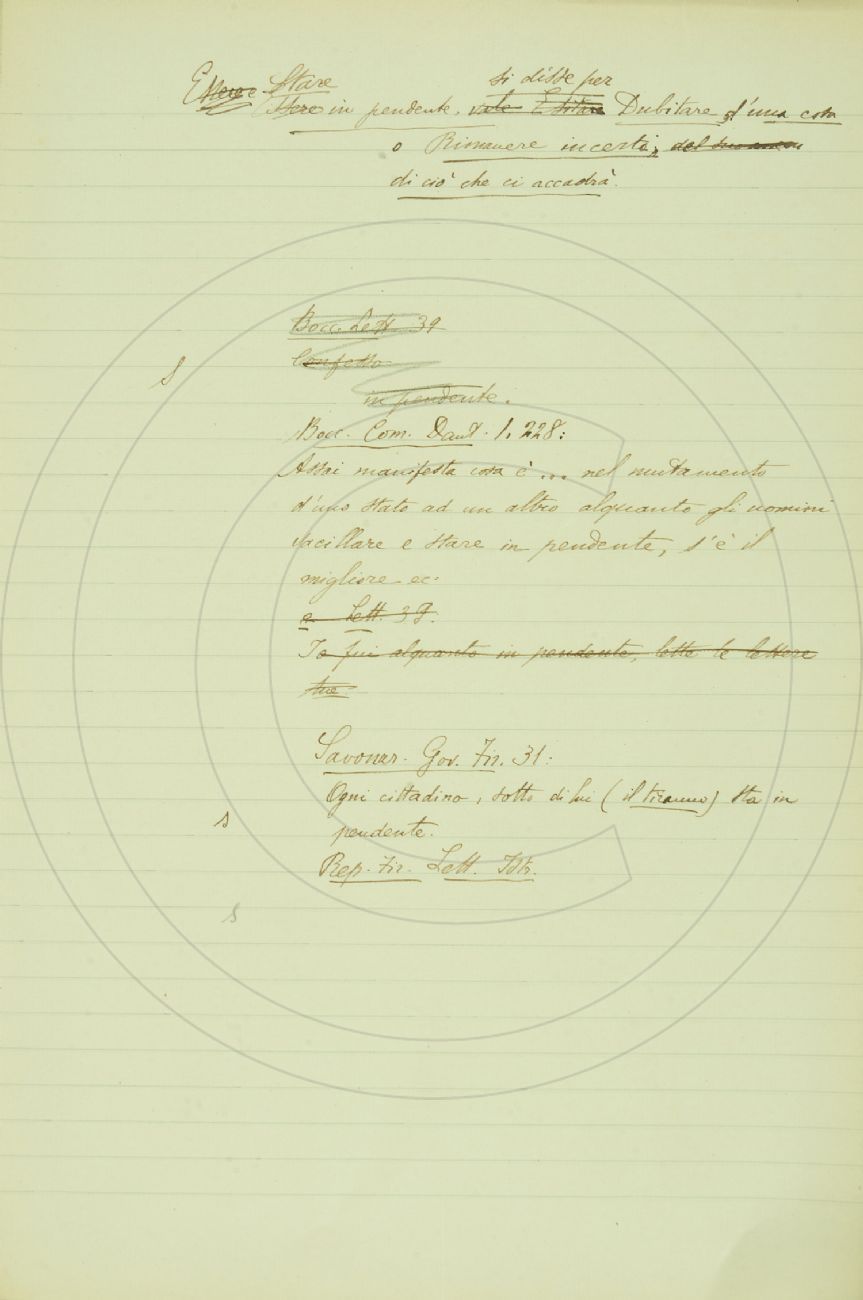 Essere e Stare si disse per
Essere in pendente, vale Esitare Dubitare d'una cosa
o Rimanere incerti,
di ciò che ci accadrà.
Bocc. Lett. 39
S Confesso
in pendente.
Bocc. Com. Dant. 1. 228:
Assai manifesta cosa è ... nel mutamento
d'uno stato ad un altro alquanto gli uomini
vacillare e stare in pendente, s'è il
migliore ec:
e Lett. 39.
Io fui alquanto in pendente, lette le lettere
tue
Savonar. Gov. Fir. 31:
Ogni cittadino, sotto di lui (il tiranno) sta in
s pendente.
Rep. Fir. Lett. Istr.
s